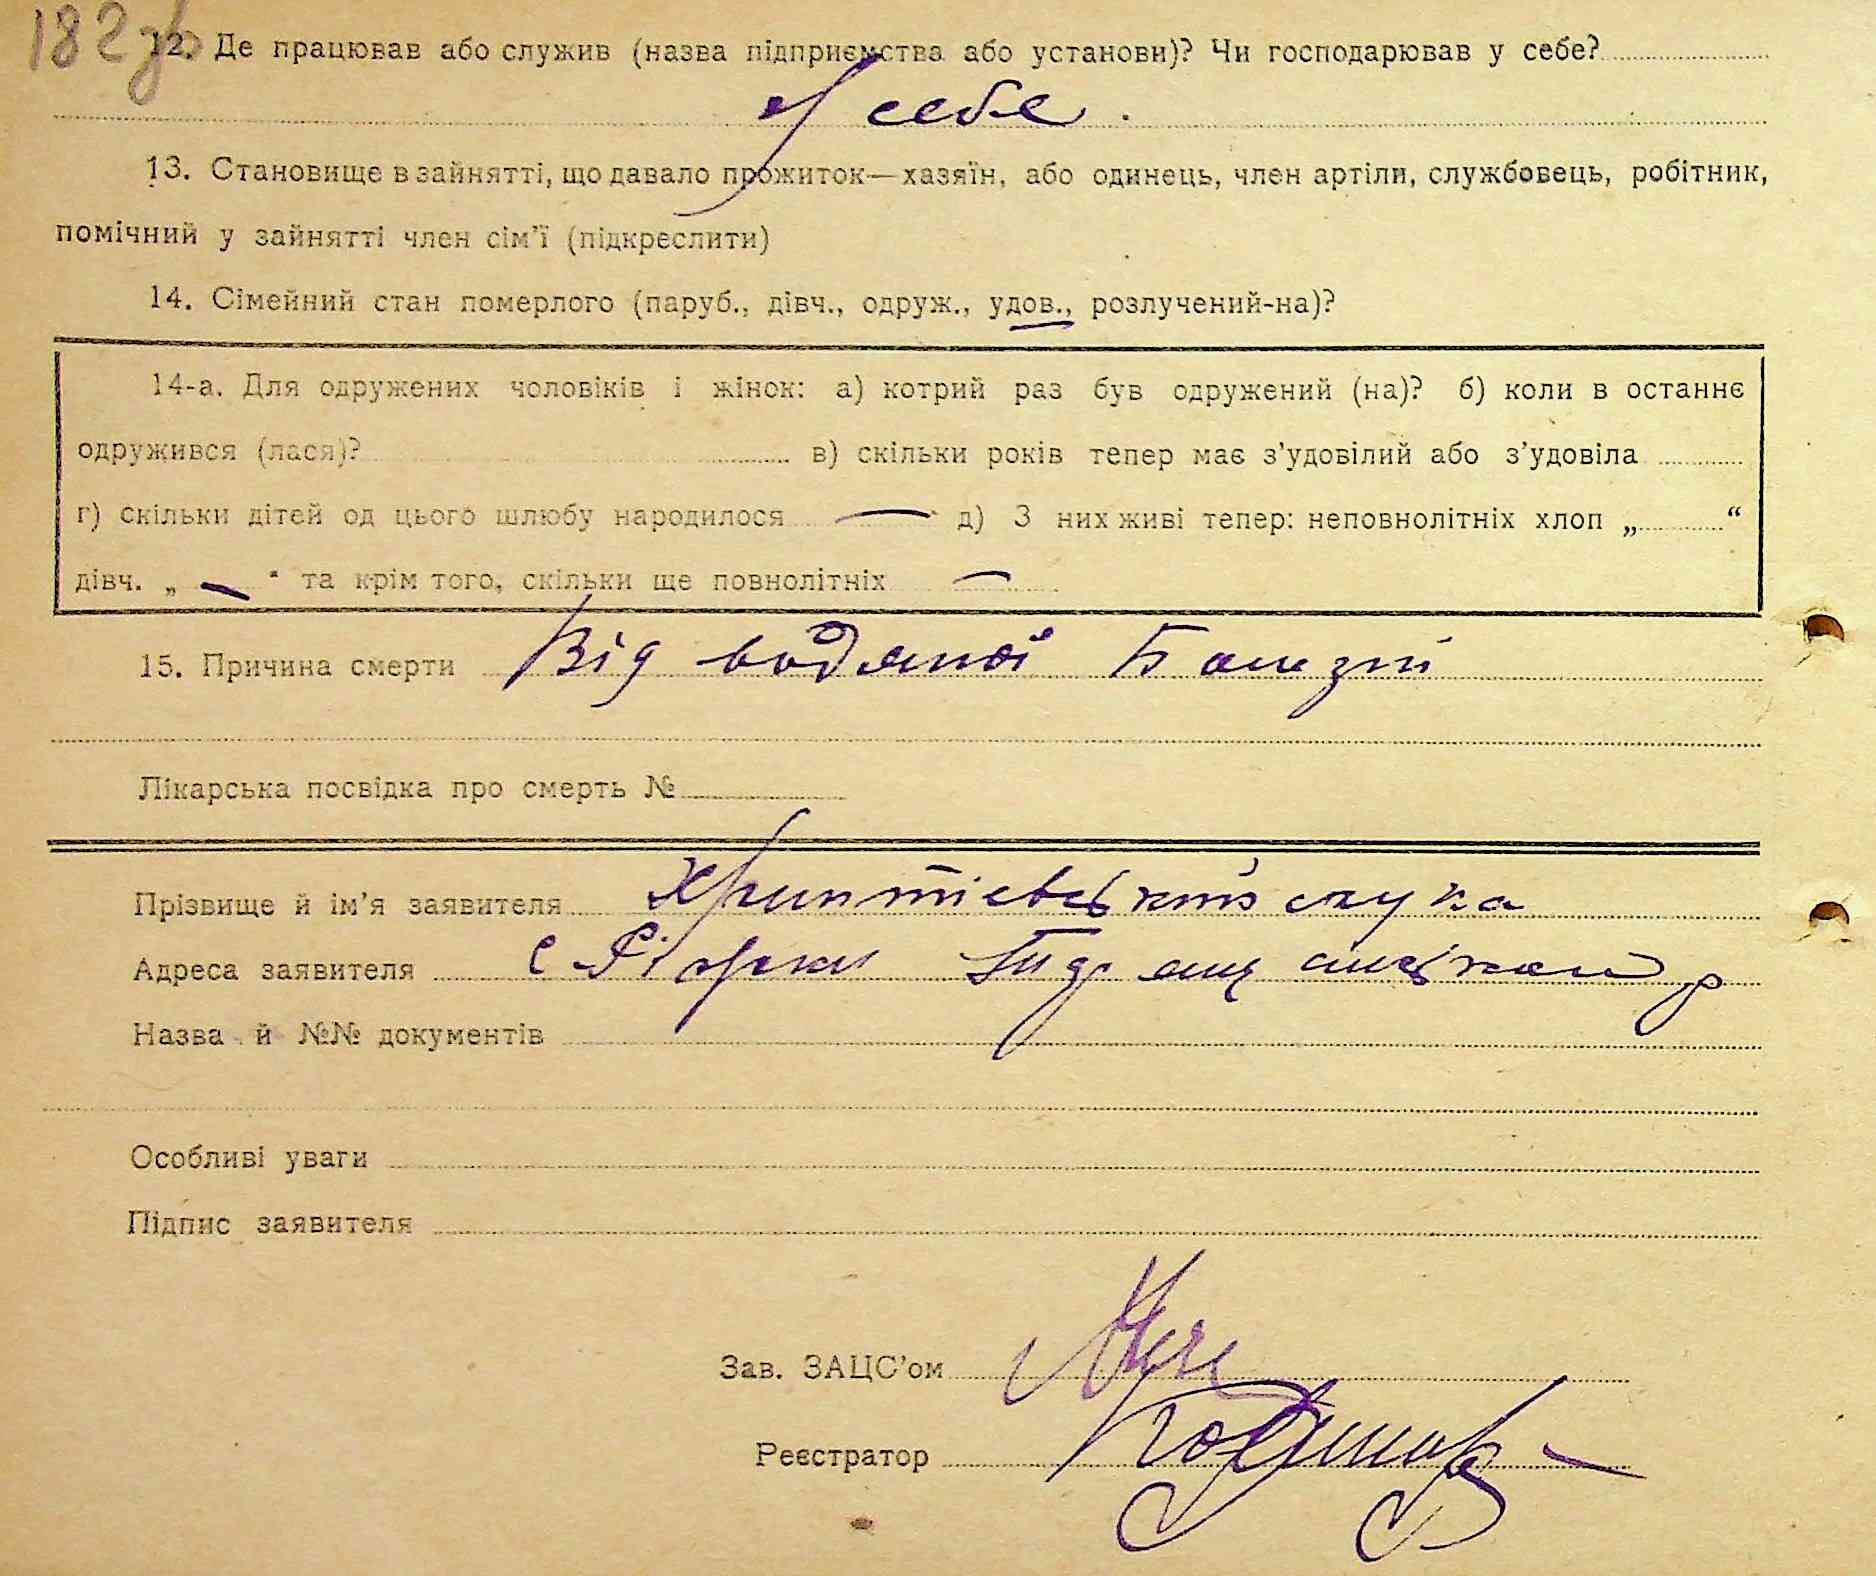 182
12. Де працював або служив (назва підприємства або установи)? Чи господарював у себе?
У себе.
13. Становище в зайнятті, що давало прожиток—хазяїн, або одинець, член артіли, службовець, робітник,
помічний у зайнятті член сім’ї (підкреслити)
14. Сімейний стан померлого (паруб., дівч., одруж., удов., розлучений-на)?
14-а. Для одружених чоловіків і жінок: а) котрий раз був одружений (на)? б) коли в останнє
одружився (лася)? в) скільки років тепер має з’удовілий або з’удовіла
г) скільки дітей од цього шлюбу народилося — д) З них живі тепер: неповнолітніх хлоп „ “
дівч. „ — “ та крім того, скільки ще повнолітніх —
15. Причина смерти Від водяної
Лікарська посвідка про смерть №
Прізвище й ім’я заявителя
Адреса заявителя с
Назва й №№ документів
Особливі уваги
Підпис заявителя
Зав. ЗАЦС’ом
Реєстратор